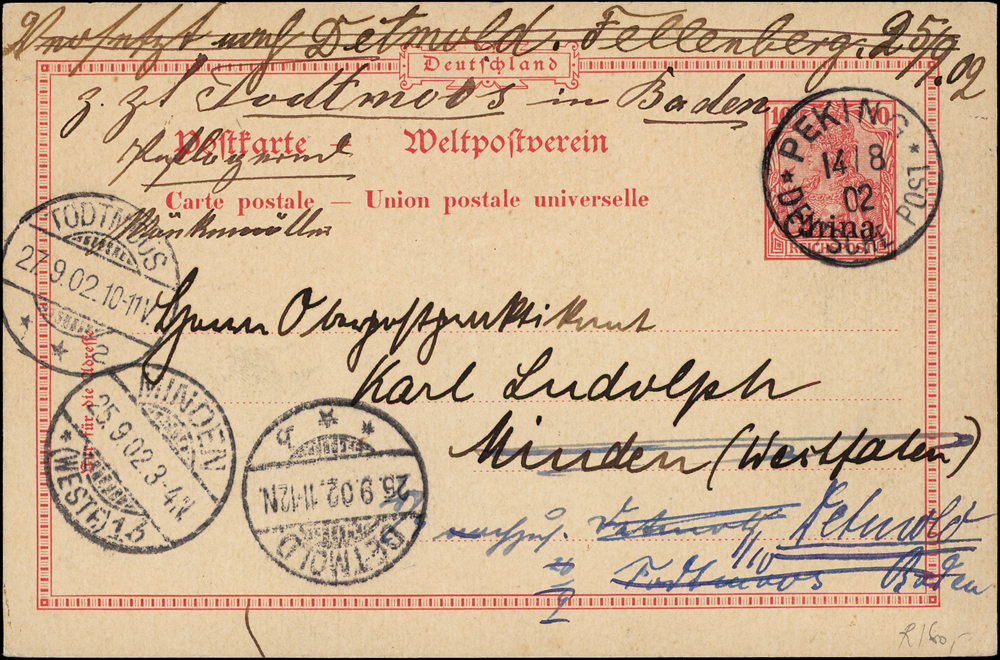 Versetzt nach Detmold. Fellenberg. 25/9.02
Deutschland
z. Zt Todtmoos in Baden
Postkarte – Weltpostverein
Postlagernd
Carte postale — Union postale universelle
10 10
China
REICHSPOST
PEKING
14/8
02
DEUTSCHE POST
TODTMOOS
27.9.02.10-11V.
Herrn Oberpostpraktikant
Karl Ludolph
Minden (Westfalen)
Nur für die Adresse
MINDEN
25.9.02.3-4N
(WESTF) 1.b
25.9.02.11-12N
DETMOLD
nachzus. Detmold Detmold
Todtmoos Baden